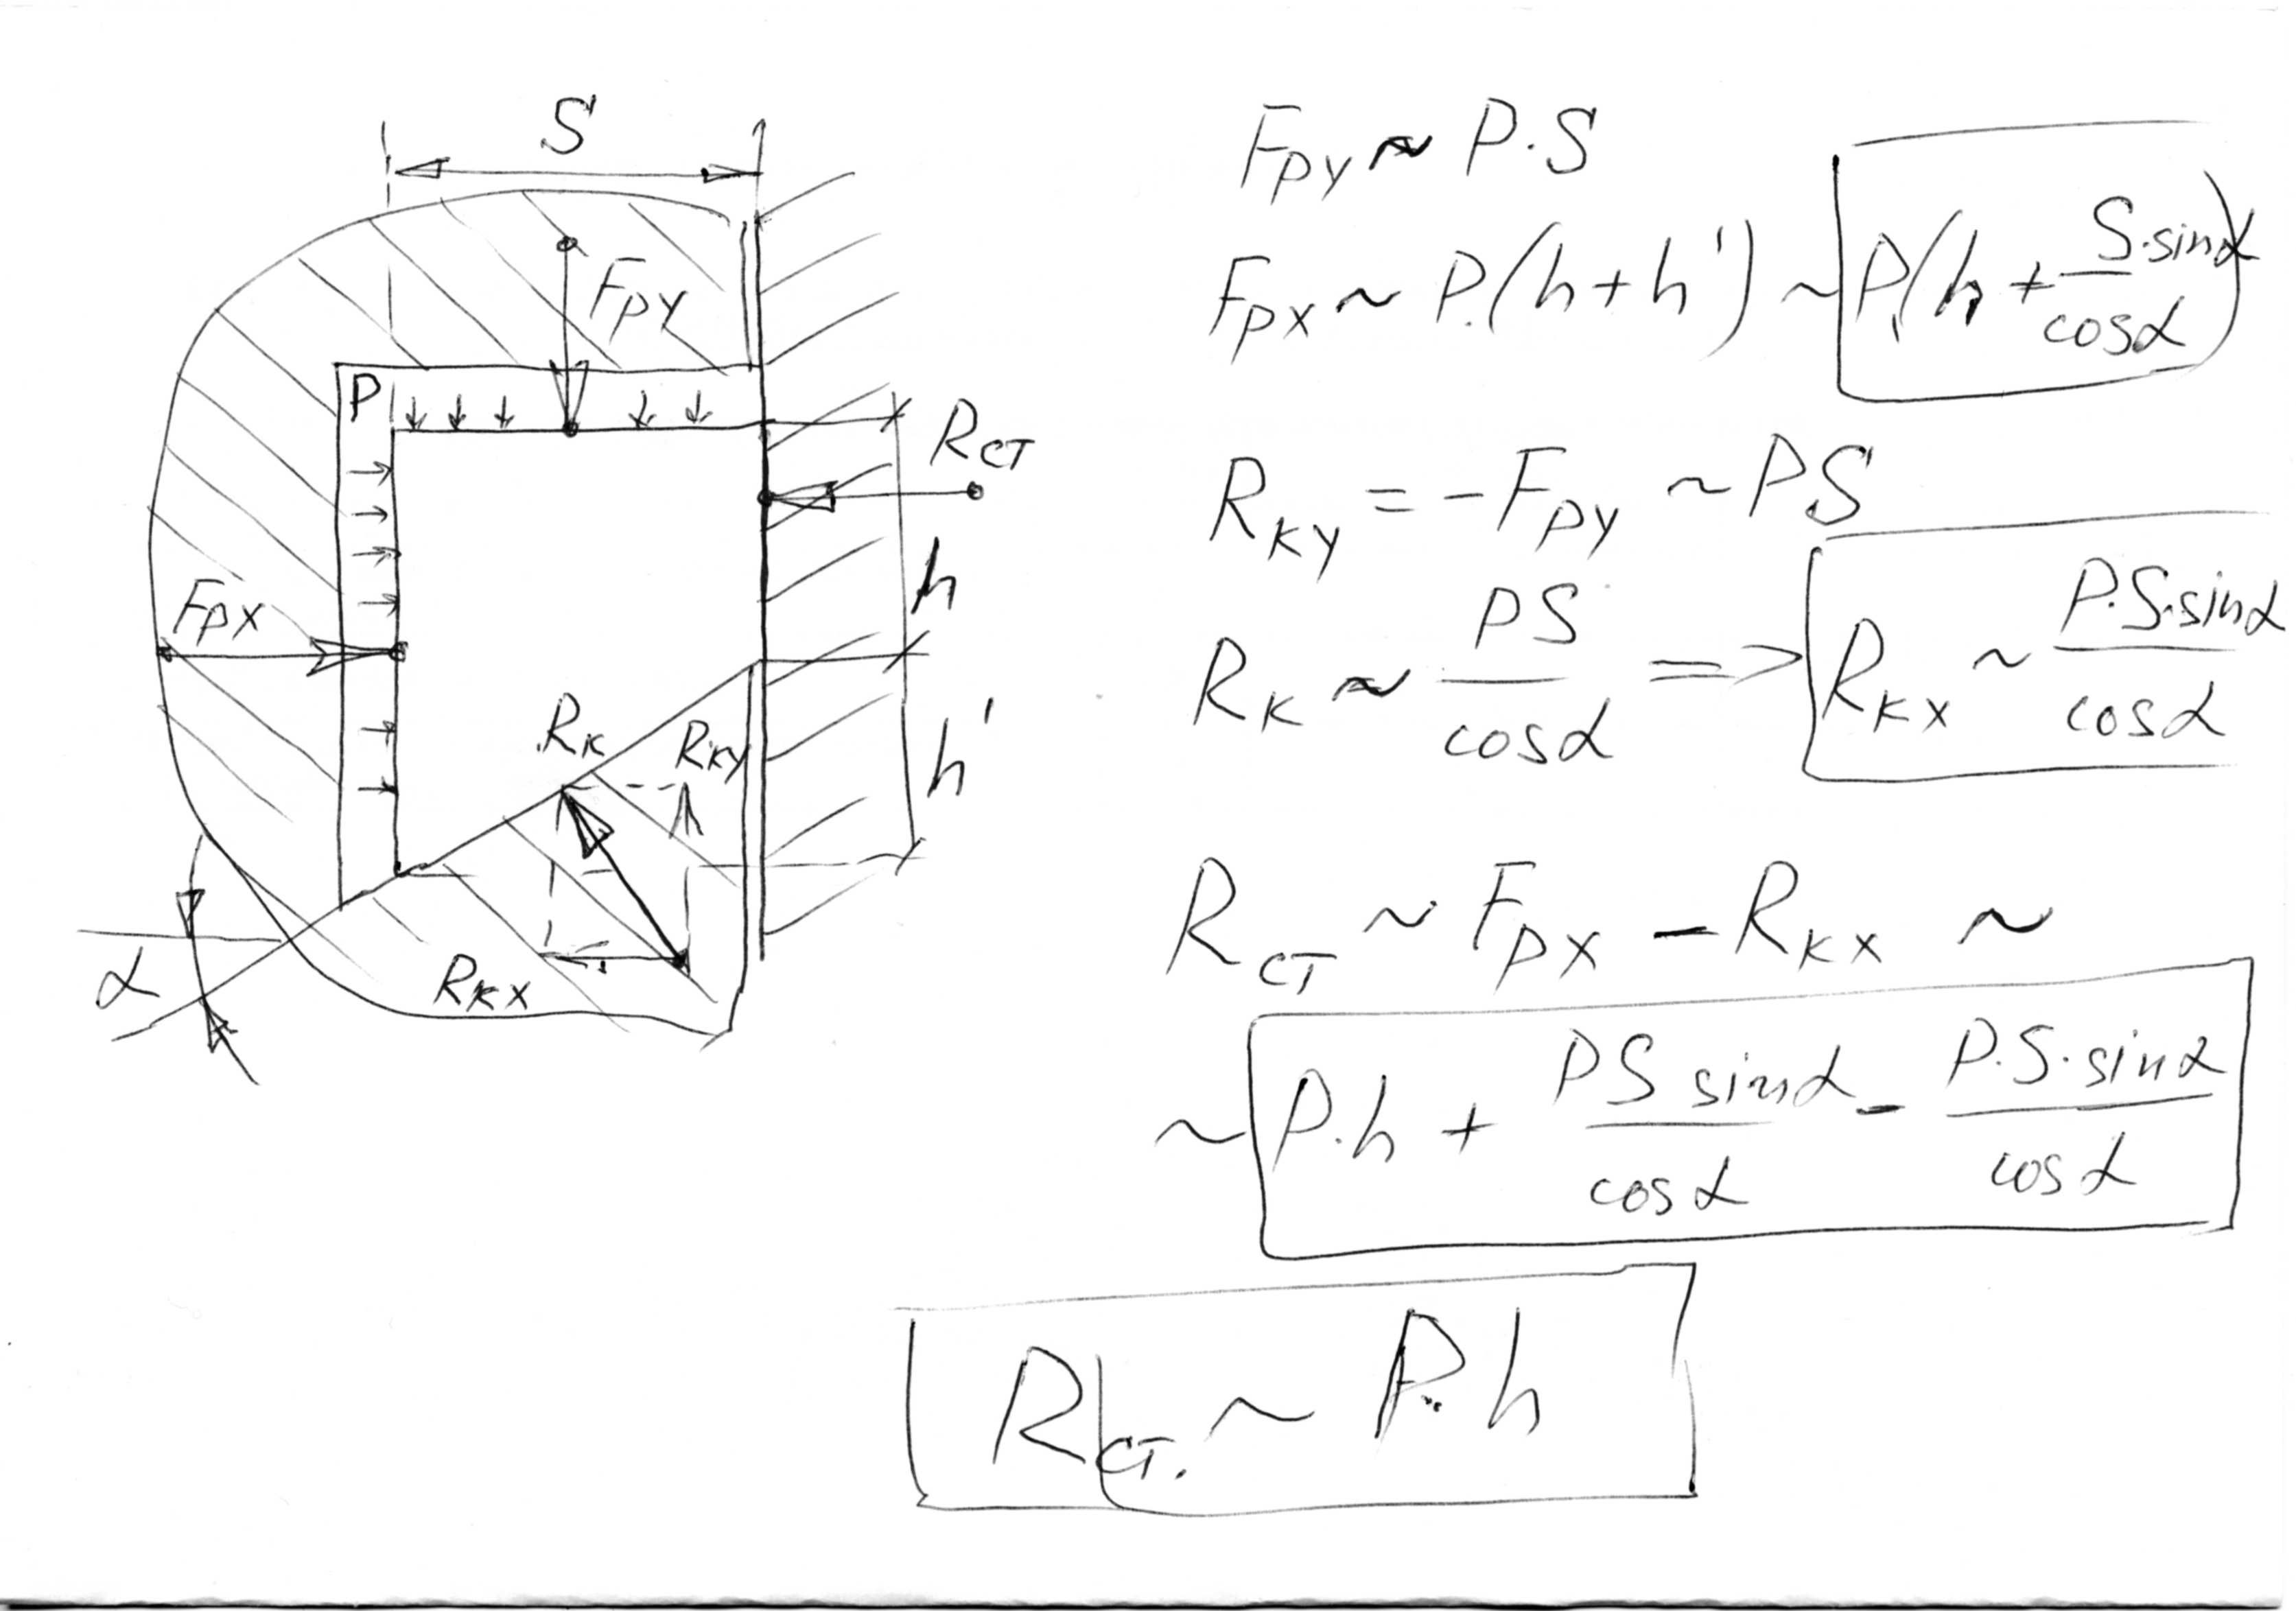 S
F_PY
P
R_CT
h
F_PX
R_K
R_KY
h'
α
R_KX
F_PY ~ P·S
F_PX ~ P·(h+h') ~ P·(h + S·sinα/cosα)
R_KY = -F_PY ~ PS
R_K ~ PS/cosα => R_KX ~ P·S·sinα/cosα
R_CT ~ F_PX - R_KX ~
~ P·h + PS sinα/cosα - P·S·sinα/cosα
R_CT. ~ P·h